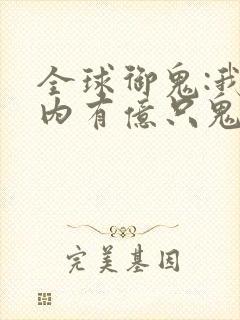 全球御鬼:我
内有億只鬼
完美基因